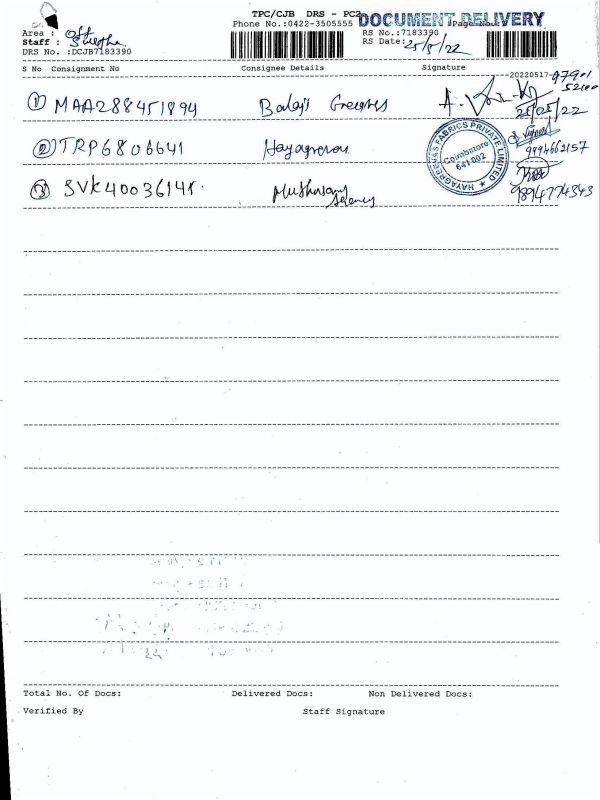 TPC/CJB DRS - PC2 DOCUMENT DELIVERY
Phone No.:0422-3505555 Page No.:
Area : Off RS No.:7183390
Staff : RS Date: 25/5/22
DRS No. :DCJB7183390
S No Consignment No Consignee Details Signature
20220517-
① MAA288451894 Balaji 25/05/22
② TRP6806641 Hayagreevas 9994662157
③ SVK40036141. Muthusamy Agency 9894774343
HAYAGREEVAS FABRICS PRIVATE LIMITED
Coimbatore
641 002
Total No. Of Docs: Delivered Docs: Non Delivered Docs:
Verified By Staff Signature